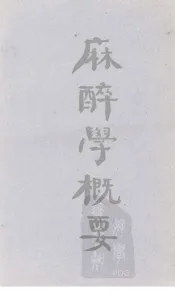 麻醉學概要